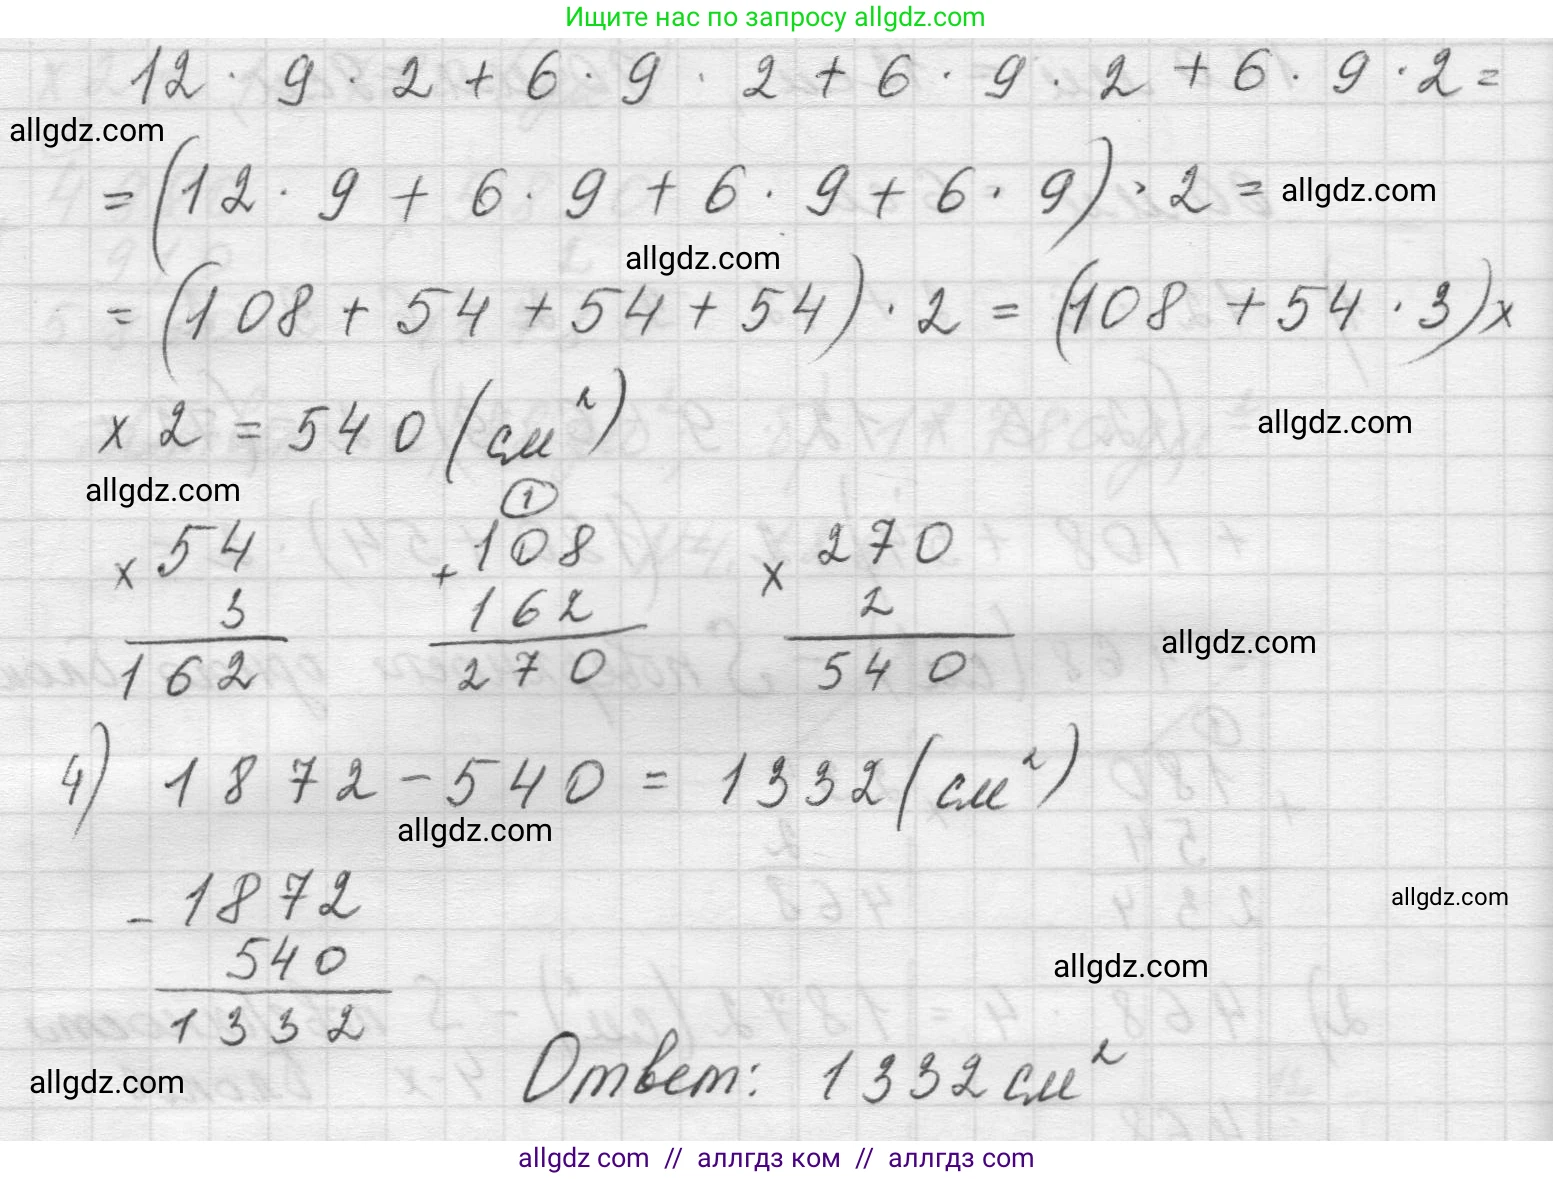 Ищите нас по запросу allgdz.com
12 · 9 · 2 + 6 · 9 · 2 + 6 · 9 · 2 + 6 · 9 · 2 =
allgdz.com
= (12 · 9 + 6 · 9 + 6 · 9 + 6 · 9) · 2 = allgdz.com
allgdz.com
= (108 + 54 + 54 + 54) · 2 = (108 + 54 · 3) x
x 2 = 540 (см²)
allgdz.com
allgdz.com
1
x 54 + 108 x 270
3 162 2
162 270 540
allgdz.com
4) 1872 - 540 = 1332 (см²)
allgdz.com
- 1872
allgdz.com
540
allgdz.com
1332
Ответ: 1332 см²
allgdz.com
allgdz com // аллгдз ком // аллгдз com